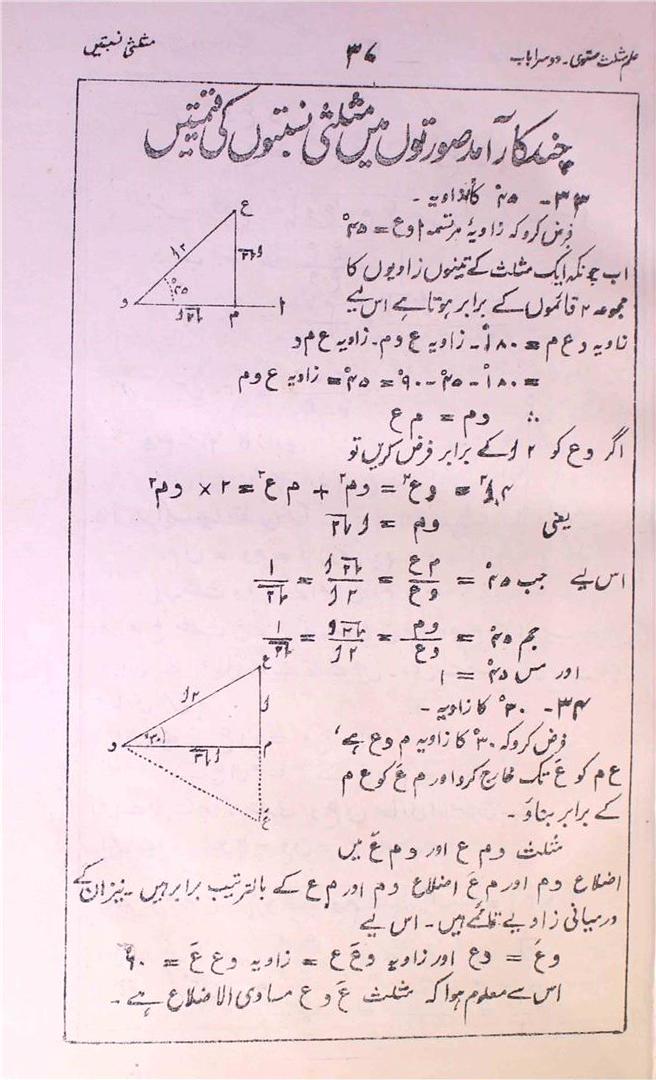 علم مثلث مستوی۔ دوسرا باب
۳۷
مثلثی نسبتیں
چند کارآمد صورتوں میں مثلثی نسبتوں کی قیمتیں
۳۳۔ ۴۵° کا زاویہ۔
فرض کرو کہ زاویۂ مرتسمہ ا و ع = ۴۵°
اب چونکہ ایک مثلث کے تینوں زاویوں کا
مجموعہ ۲ قائموں کے برابر ہوتا ہے اس لیے
زاویہ و ع م = ۱۸۰° - زاویہ ع و م - زاویہ ع م و
= ۱۸۰° - ۴۵° - ۹۰° = ۴۵° = زاویہ ع و م
∴ و م = م ع
اگر و ع کو ۲ l کے برابر فرض کریں تو
۴ l² = و ع² = و م² + م ع² = ۲ × و م²
یعنی و م = l √۲
اس لیے جب ۴۵° = م ع / و ع = l √۲ / ۲ l = ۱ / √۲
جم ۴۵° = و م / و ع = l √۲ / ۲ l = ۱ / √۲
اور مس ۴۵° = ۱
۳۴۔ ۳۰° کا زاویہ۔
فرض کرو کہ ۳۰° کا زاویہ م و ع ہے،
ع م کو عَ تک خارج کرو اور م عَ کو ع م
کے برابر بناؤ۔
مثلث و م ع اور و م عَ میں
اضلاع و م اور م عَ اضلاع و م اور م ع کے بالترتیب برابر ہیں۔ نیز ان کے
درمیانی زاویے قائمے ہیں۔ اس لیے
و عَ = و ع اور زاویہ و عَ ع = زاویہ و ع عَ = ۶۰°
اس سے معلوم ہوا کہ مثلث عَ و ع مساوی الاضلاع ہے۔